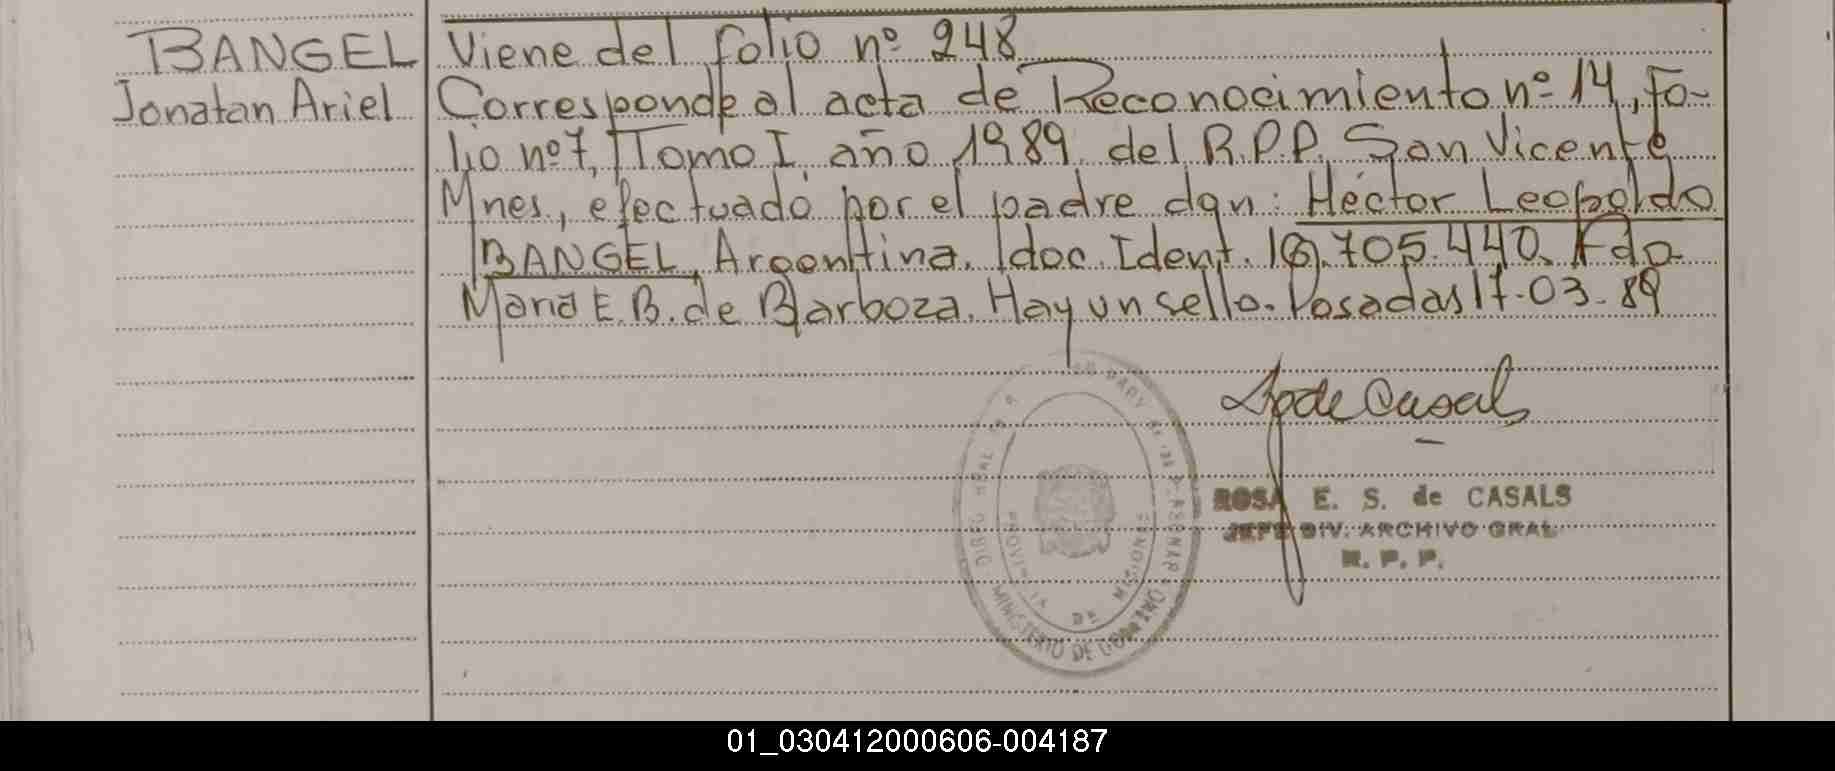 BANGEL
Jonatan Ariel
Viene del folio nº 248
Corresponde al acta de Reconocimiento nº 14, Fo-
lio nº 7, Tomo I, año 1989 del R.P.P. San Vicente
Mnes, efectuado por el padre dgn: Héctor Leopoldo
BANGEL, Argentina. doc. Ident. 16.705.440. Fdo
Maria E. B. de Barboza. Hay un sello. Posadas 17-03-89
de Casals
ROSA E. S. de CASALS
JEFE DIV. ARCHIVO GRAL
R. P. P.
MINISTERIO DE GOBIERNO
PROVINCIA DE MISIONES
01_030412000606-004187